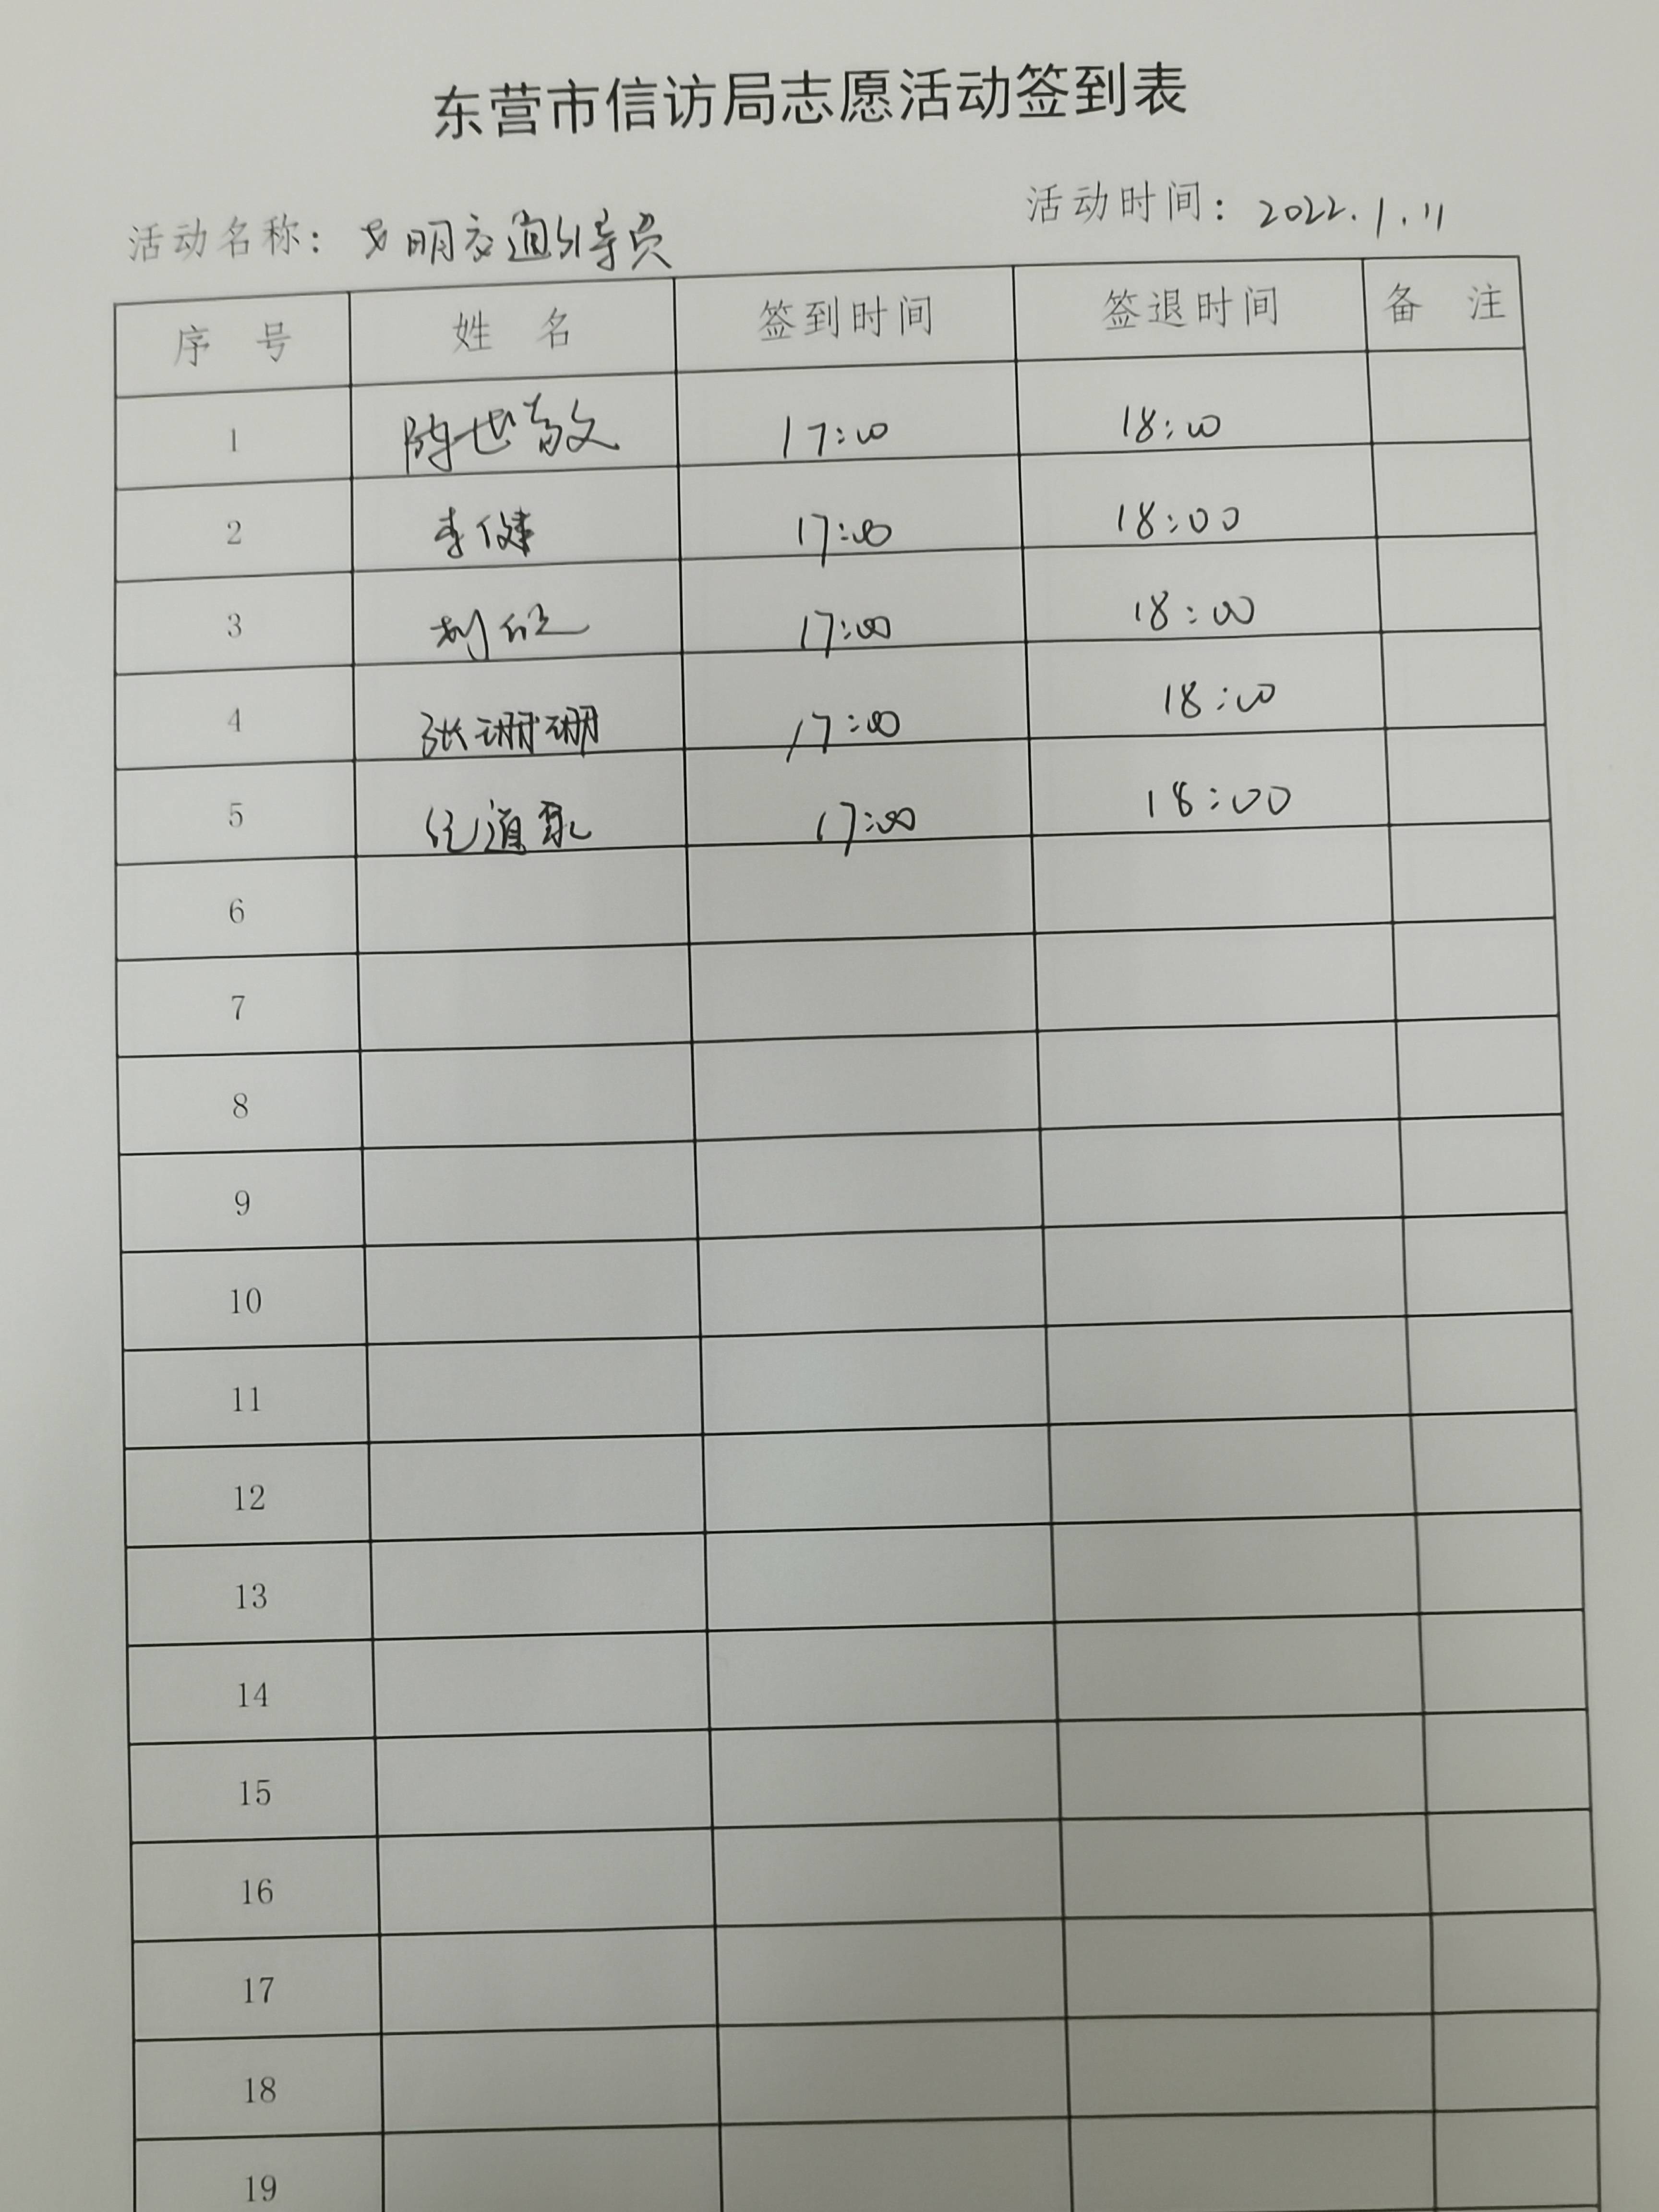 东营市信访局志愿活动签到表
活动名称：文明交通引导员 活动时间：2022.1.11
序 号 姓 名 签到时间 签退时间 备 注
1 陈世敬文 17:00 18:00
2 李健 17:00 18:00
3 刘 17:00 18:00
4 张珊珊 17:00 18:00
5 道 17:00 18:00
6
7
8
9
10
11
12
13
14
15
16
17
18
19